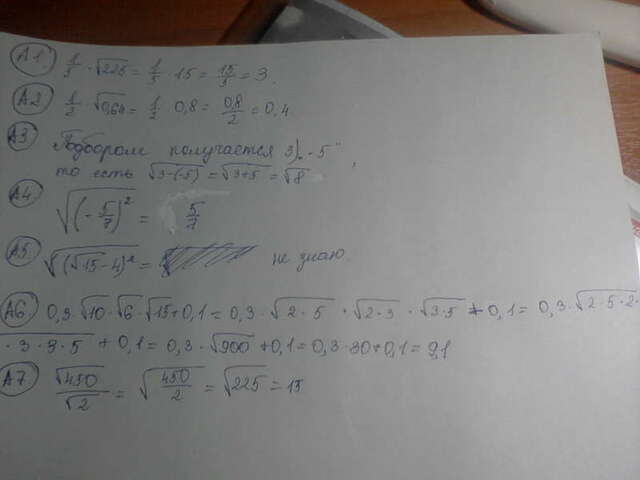 А1. 1/5 · √225 = 1/5 · 15 = 15/5 = 3.
А2 1/2 · √0,64 = 1/2 · 0,8 = 0,8/2 = 0,4
А3 Подбором получается 3) „-5",
то есть √3-(-5) = √3+5 = √8
А4 √(-5/7)² = 5/7
А5 √(√15-4)² = не знаю.
А6 0,3·√10·√6·√15+0,1 = 0,3·√2·5 · √2·3 · √3·5 + 0,1 = 0,3·√2·5·2·
·3·3·5 + 0,1 = 0,3·√900 + 0,1 = 0,3·30+0,1 = 9,1
А7 √450/√2 = √450/2 = √225 = 15